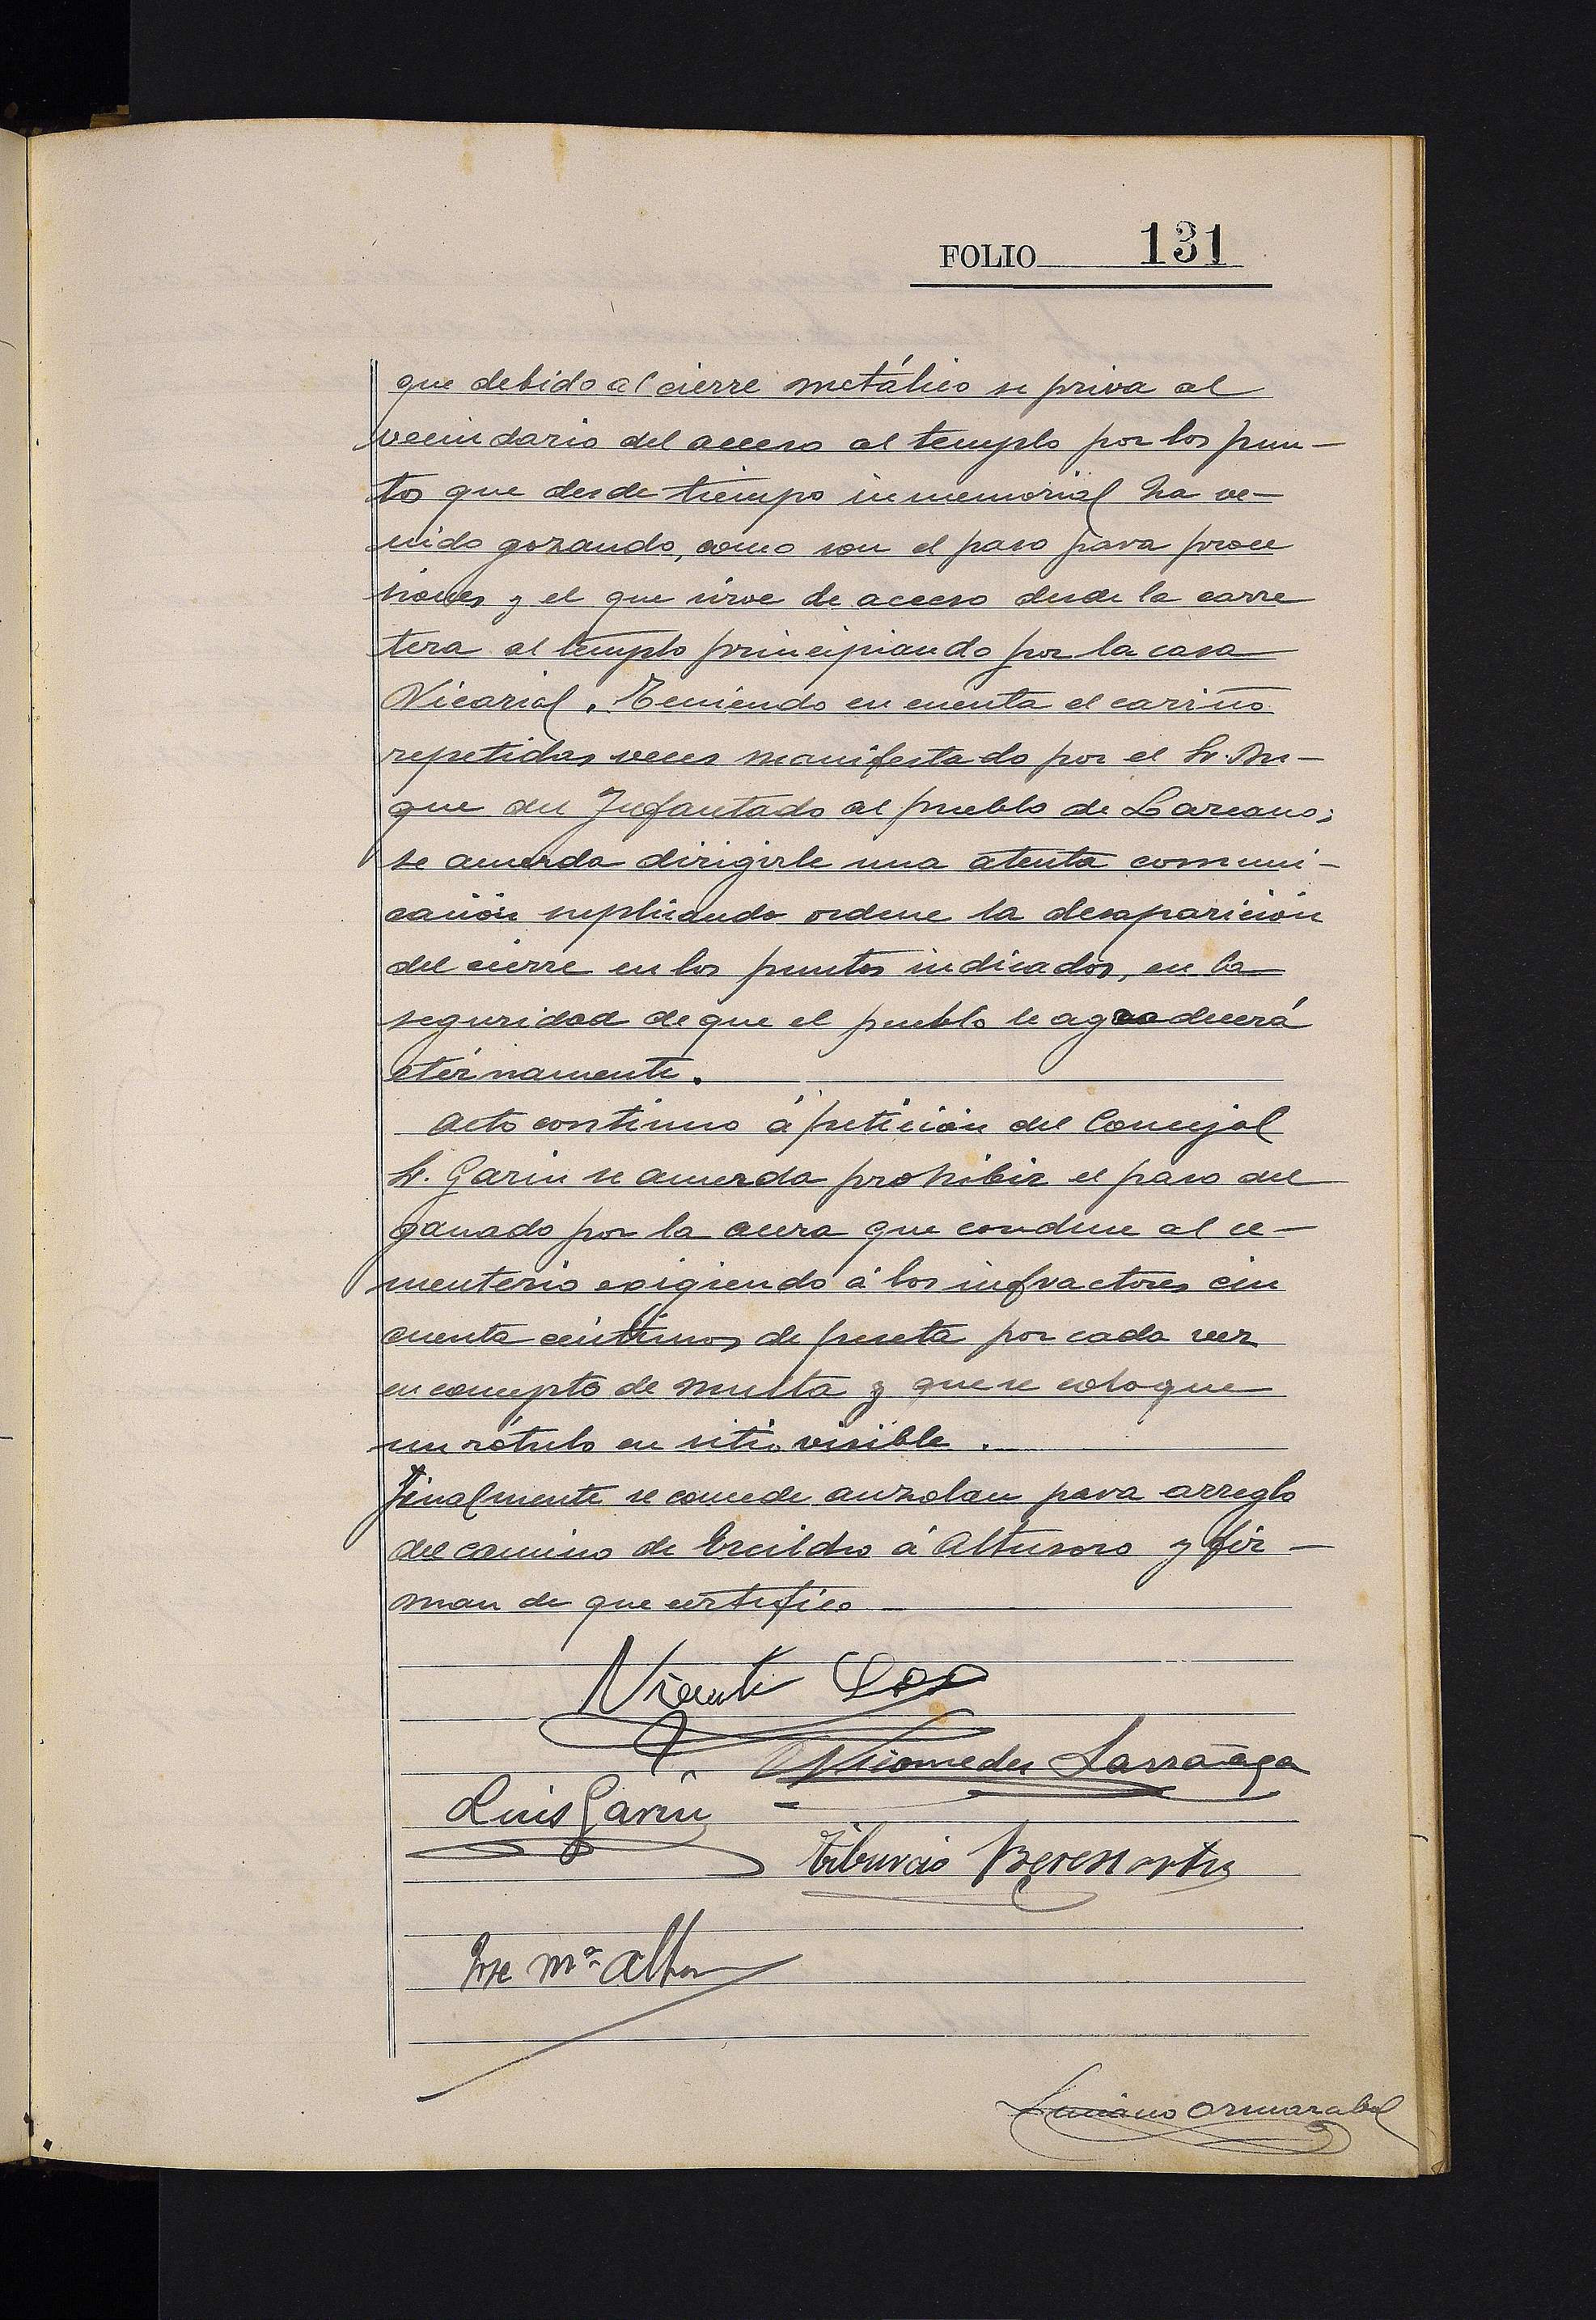 FOLIO 131
que debido al cierre metálico se priva al
vecindario del acceso al templo por los pun-
tos que desde tiempo inmemorial ha ve-
nido gozando, como son el paso para proce
siones y el que sirve de acceso desde la carre
tera al templo principiando por la casa
Vicarial. Teniendo en cuenta el cariño
repetidas veces manifestado por el Sr. Du-
que del Infantado al pueblo de Lazcano;
se acuerda dirigirle una atenta comuni-
cación suplicando ordene la desaparición
del cierre en los puntos indicados, en la
seguridad de que el pueblo le agradecerá
etérnamente.
Acto continuo á petición del Concejal
Sr. Garin se acuerda prohibir el paso del
ganado por la acera que conduce al ce-
menterio exigiendo á los infractores cin
cuenta céntimos de peseta por cada vez
en concepto de multa y que se coloque
un rótulo en sitio visible.
Finalmente se concede auzolan para arreglo
del camino de á y fir-
man de que certifico
Vicente
Nicomedes Larrañaga
Luis Garin
Tiburcio
Jose Mª
Luciano Ormazabal